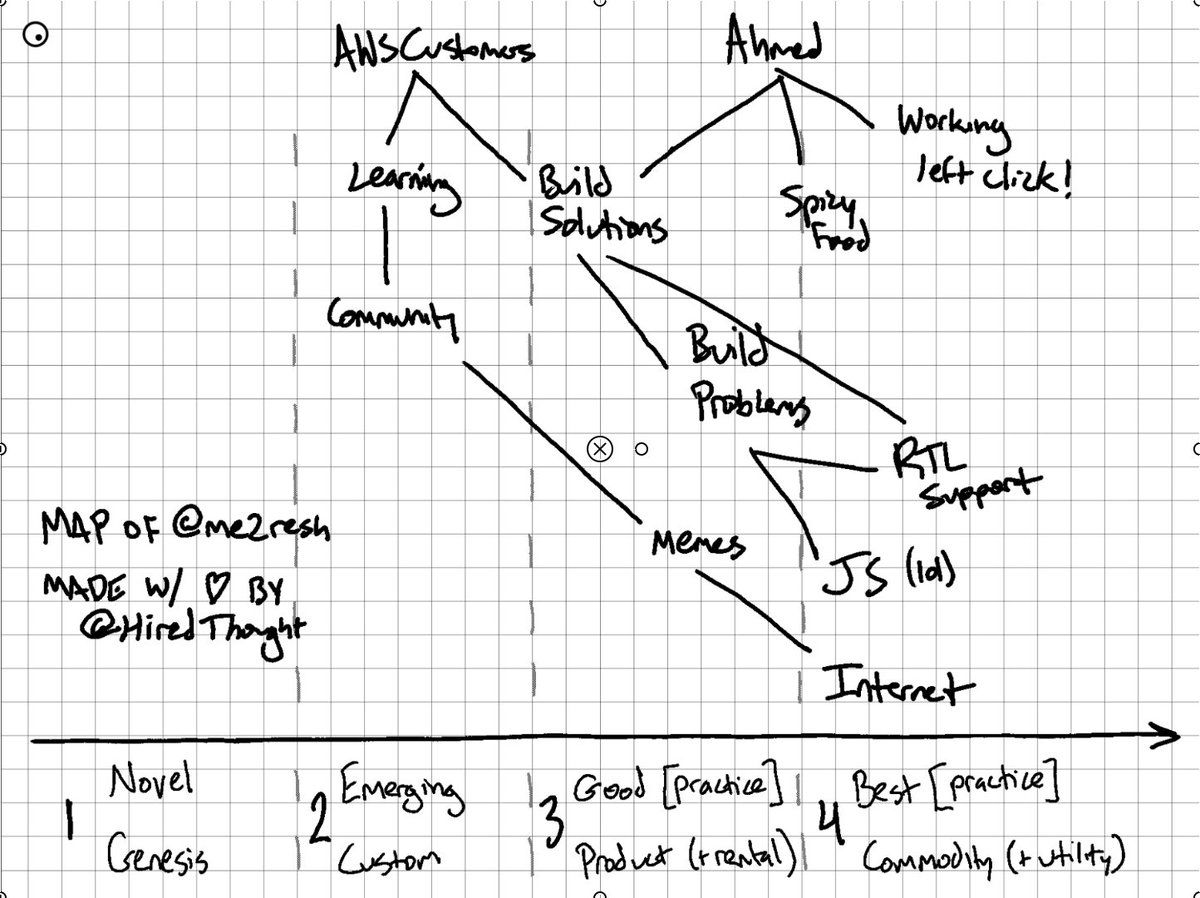 AWS Customers
Ahmed
Working
left click!
Learning
Build
Solutions
Spicy
Food
Community
Build
Problems
RTL
Support
MAP OF @me2resh
MADE W/ ♡ BY
@HiredThought
Memes
JS (lol)
Internet
1
Novel
Genesis
2
Emerging
Custom
3
Good [practice]
Product (+rental)
4
Best [practice]
Commodity (+utility)